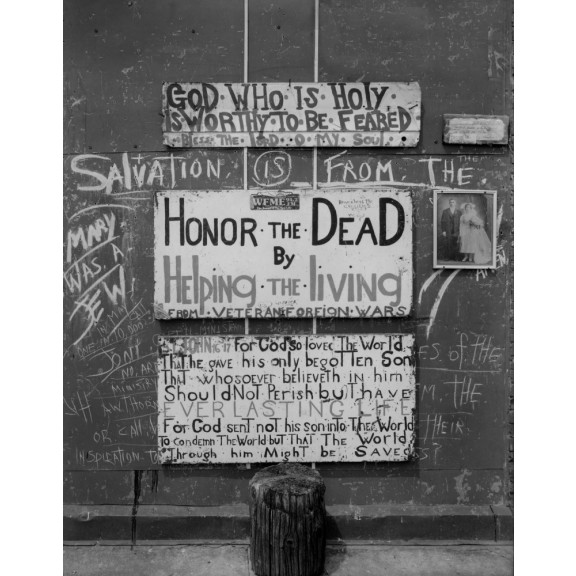 GOD WHO IS HOLY
IS WORTHY TO BE FEARED
Bless The Lord O MY Soul
SALVATION (IS) FROM THE
WFME
HONOR THE DEAD
By
Helping THE living
FROM VETERAN FOREIGN WARS
MARY
WAS A
JEW
ST JOHN For God so loved The World
That he gave his only begotten Son
That whosoever believeth in him
Should Not Perish but have
EVERLASTING LIFE
For God sent not his son into The World
To condemn The World but That The World
Through him Might be Saved
OF THE
THE
THEIR
OR CALL
INSPIRATION